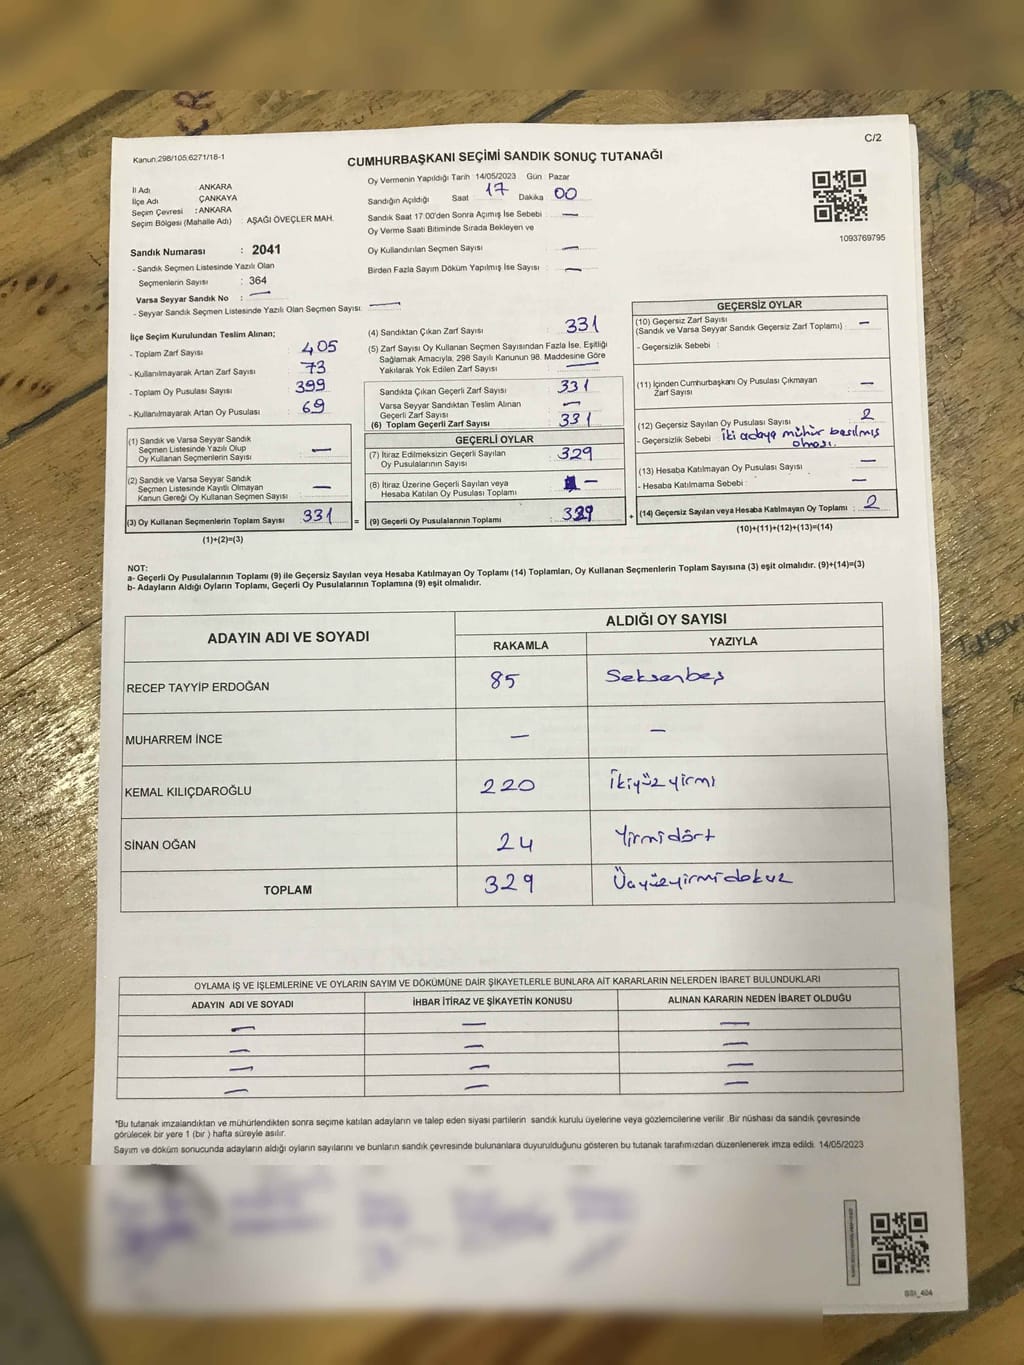 C/2
Kanun,298/105,6271/18-1
CUMHURBAŞKANI SEÇİMİ SANDIK SONUÇ TUTANAĞI
İl Adı ANKARA
İlçe Adı ÇANKAYA
Seçim Çevresi : ANKARA
Seçim Bölgesi (Mahalle Adı) AŞAĞI ÖVEÇLER MAH.
Sandık Numarası : 2041
- Sandık Seçmen Listesinde Yazılı Olan
Seçmenlerin Sayısı : 364
Varsa Seyyar Sandık No : —
- Seyyar Sandık Seçmen Listesinde Yazılı Olan Seçmen Sayısı: —
Oy Vermenin Yapıldığı Tarih : 14/05/2023 Gün : Pazar
Sandığın Açıldığı Saat 17 Dakika 00
Sandık Saat 17.00'den Sonra Açımış İse Sebebi : —
Oy Verme Saati Bitiminde Sırada Bekleyen ve
Oy Kullandırılan Seçmen Sayısı : —
Birden Fazla Sayım Döküm Yapılmış İse Sayısı : —
1093769795
İlçe Seçim Kurulundan Teslim Alınan;
- Toplam Zarf Sayısı : 405
- Kullanılmayarak Artan Zarf Sayısı : 73
- Toplam Oy Pusulası Sayısı : 399
- Kullanılmayarak Artan Oy Pusulası : 69
(1) Sandık ve Varsa Seyyar Sandık
Seçmen Listesinde Yazılı Olup
Oy Kullanan Seçmenlerin Sayısı : —
(2) Sandık ve Varsa Seyyar Sandık
Seçmen Listesinde Kayıtlı Olmayan
Kanun Gereği Oy Kullanan Seçmen Sayısı : —
(3) Oy Kullanan Seçmenlerin Toplam Sayısı : 331
(1)+(2)=(3)
(4) Sandıktan Çıkan Zarf Sayısı : 331
(5) Zarf Sayısı Oy Kullanan Seçmen Sayısından Fazla İse, Eşitliği
Sağlamak Amacıyla, 298 Sayılı Kanunun 98. Maddesine Göre
Yakılarak Yok Edilen Zarf Sayısı : —
Sandıkta Çıkan Geçerli Zarf Sayısı : 331
Varsa Seyyar Sandıktan Teslim Alınan
Geçerli Zarf Sayısı : —
(6) Toplam Geçerli Zarf Sayısı : 331
GEÇERLİ OYLAR
(7) İtiraz Edilmeksizin Geçerli Sayılan
Oy Pusulalarının Sayısı : 329
(8) İtiraz Üzerine Geçerli Sayılan veya
Hesaba Katılan Oy Pusulası Toplamı : —
= (9) Geçerli Oy Pusulalarının Toplamı : 329
GEÇERSİZ OYLAR
(10) Geçersiz Zarf Sayısı
(Sandık ve Varsa Seyyar Sandık Geçersiz Zarf Toplamı) : —
- Geçersizlik Sebebi :
(11) İçinden Cumhurbaşkanı Oy Pusulası Çıkmayan
Zarf Sayısı : —
(12) Geçersiz Sayılan Oy Pusulası Sayısı : 2
- Geçersizlik Sebebi : İki adaya mühür basılmış
olması.
(13) Hesaba Katılmayan Oy Pusulası Sayısı : —
- Hesaba Katılmama Sebebi : —
+ (14) Geçersiz Sayılan veya Hesaba Katılmayan Oy Toplamı : 2
(10)+(11)+(12)+(13)=(14)
NOT:
a- Geçerli Oy Pusulalarının Toplamı (9) ile Geçersiz Sayılan veya Hesaba Katılmayan Oy Toplamı (14) Toplamları, Oy Kullanan Seçmenlerin Toplam Sayısına (3) eşit olmalıdır. (9)+(14)=(3)
b- Adayların Aldığı Oyların Toplamı, Geçerli Oy Pusulalarının Toplamına (9) eşit olmalıdır.
ADAYIN ADI VE SOYADI ALDIĞI OY SAYISI
RAKAMLA YAZIYLA
RECEP TAYYİP ERDOĞAN 85 Seksenbeş
MUHARREM İNCE — —
KEMAL KILIÇDAROĞLU 220 İkiyüzyirmi
SİNAN OĞAN 24 Yirmidört
TOPLAM 329 Üçyüzyirmidokuz
OYLAMA İŞ VE İŞLEMLERİNE VE OYLARIN SAYIM VE DÖKÜMÜNE DAİR ŞİKAYETLERLE BUNLARA AİT KARARLARIN NELERDEN İBARET BULUNDUKLARI
ADAYIN ADI VE SOYADI İHBAR İTİRAZ VE ŞİKAYETİN KONUSU ALINAN KARARIN NEDEN İBARET OLDUĞU
— — —
— — —
— — —
— — —
*Bu tutanak imzalandıktan ve mühürlendikten sonra seçime katılan adayların ve talep eden siyasi partilerin sandık kurulu üyelerine veya gözlemcilerine verilir. Bir nüshası da sandık çevresinde
görülecek bir yere 1 (bir ) hafta süreyle asılır.
Sayım ve döküm sonucunda adayların aldığı oyların sayılarını ve bunların sandık çevresinde bulunanlara duyurulduğunu gösteren bu tutanak tarafımızdan düzenlenerek imza edildi. 14/05/2023